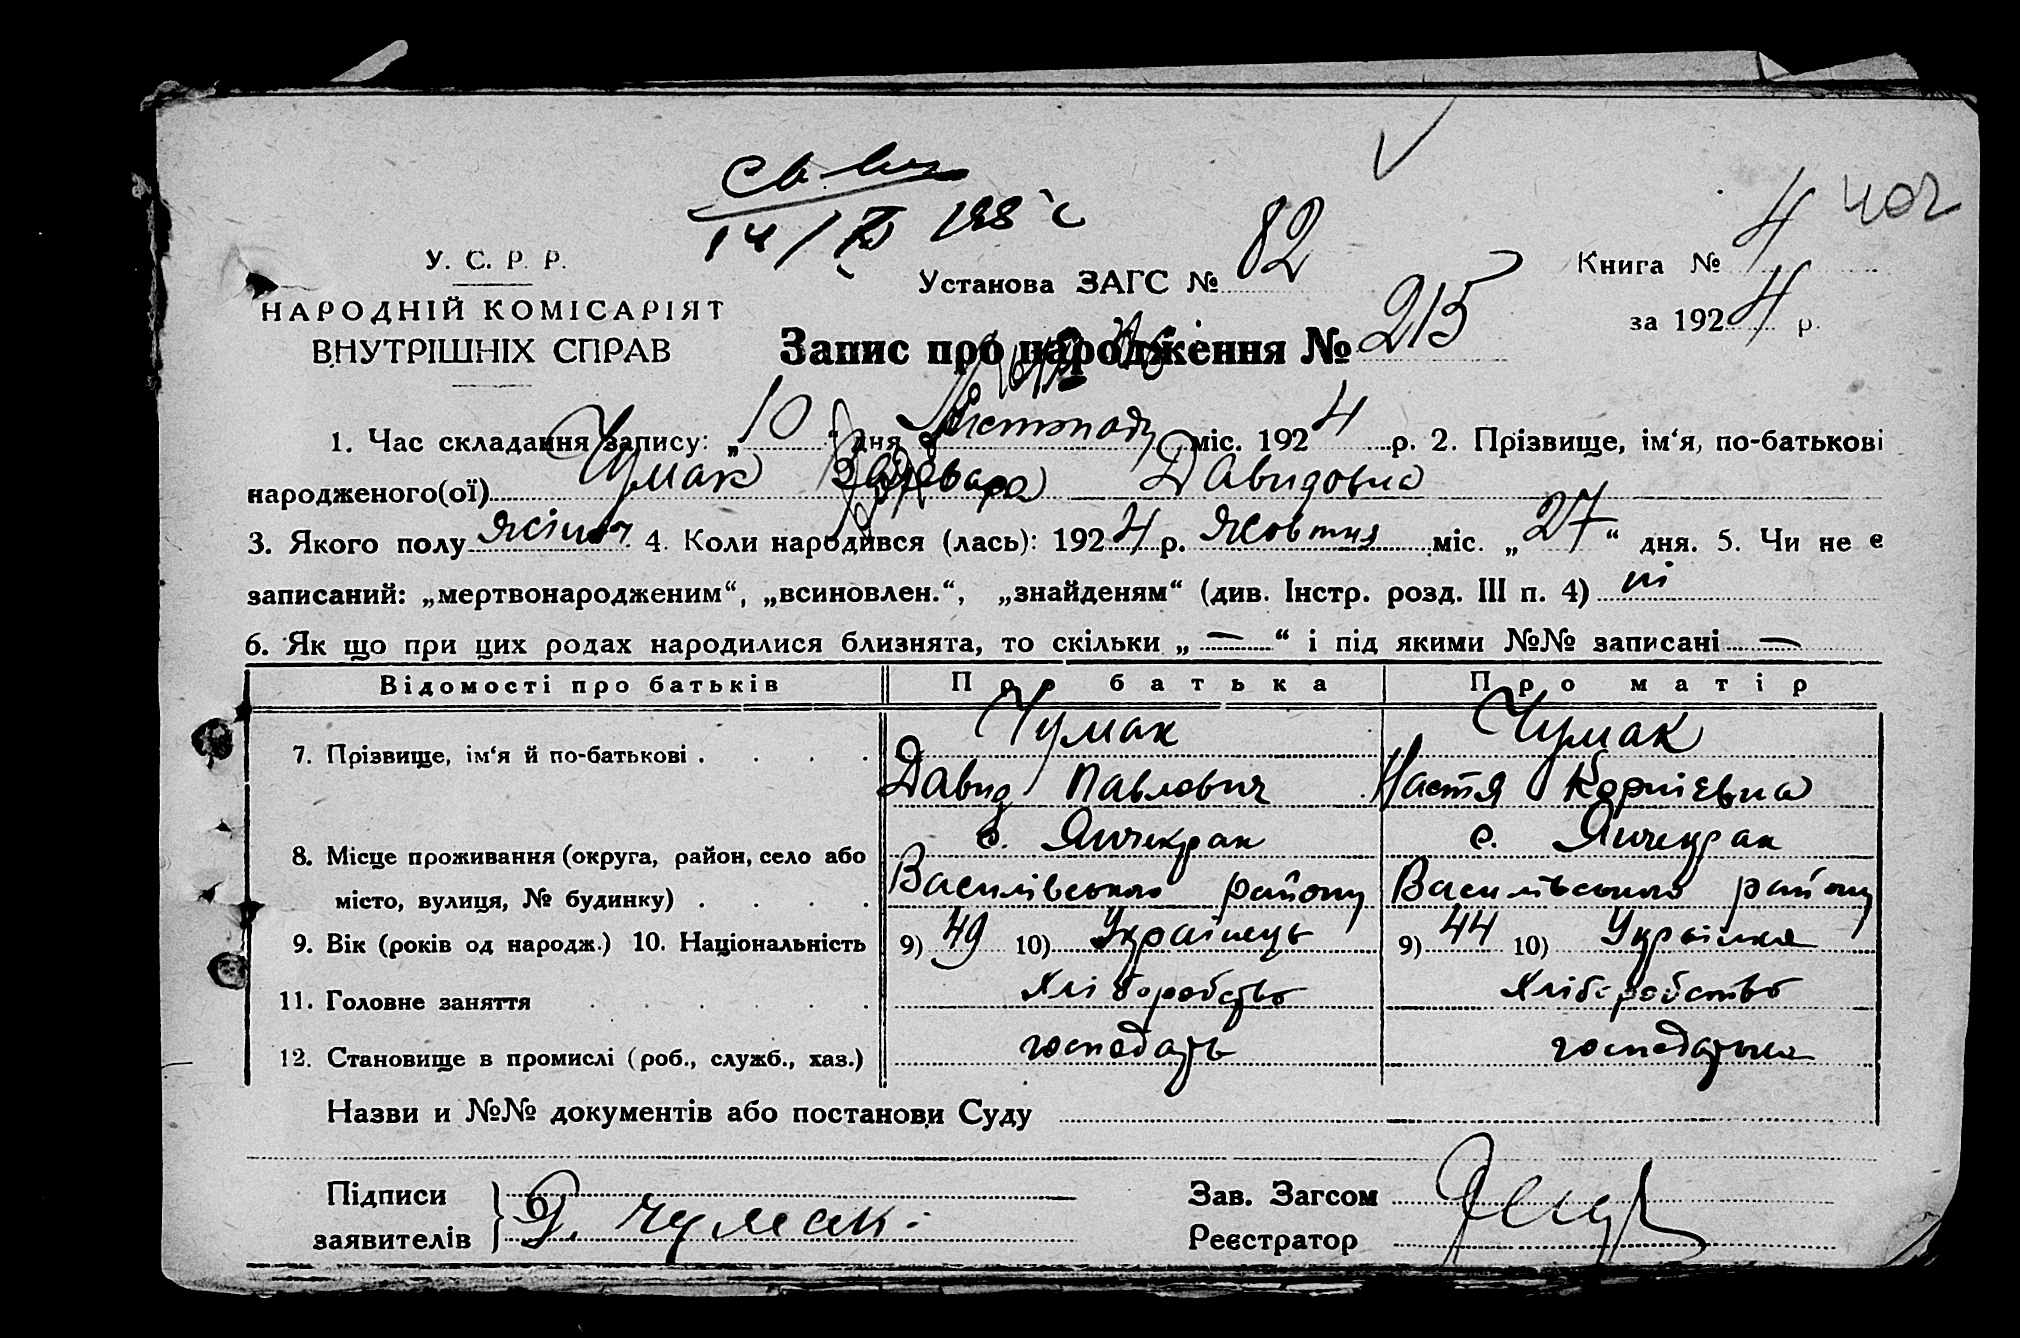 402
У. С. Р. Р.
НАРОДНІЙ КОМІСАРІЯТ
ВНУТРІШНІХ СПРАВ
Установа ЗАГС № 82
Книга № 4
за 1924 р.
Запис про народження № 215
1. Час складання запису: „10“ дня Листопаду міс. 1924 р. 2. Прізвище, ім‘я, по-батькові
народженого(ої) Чумак Давидовна
3. Якого полу жіноч. 4. Коли народився (лась): 1924 р. Жовтня міс. „27“ дня. 5. Чи не є
записаний: „мертвонародженим“, „всиновлен.“, „знайденям“ (див. Інстр. розд. III п. 4) ні
6. Як що при цих родах народилися близнята, то скільки „—“ і під якими №№ записані —
Відомості про батьків Про батька Про матір
7. Прізвище, ім‘я й по-батькові . . . . Чумак Чумак
Давид Павлович Настя Корнієвна
8. Місце проживання (округа, район, село або с. Янчекрак с. Янчекрак
місто, вулиця, № будинку) . . . . Василівського району Василівського району
9. Вік (років од народж.) 10. Національність 9) 49 10) Українець 9) 44 10) Українка
11. Головне заняття . . . . . Хліборобство Хліборобство
12. Становище в промислі (роб., служб., хаз.) господарь господарька
Назви и №№ документів або постанови Суду
Підписи
заявителів } Чумак
Зав. Загсом
Реєстратор